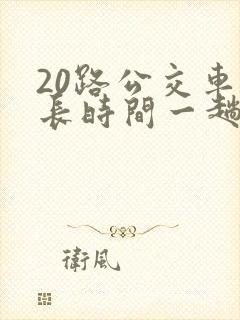 20路公交車
長時間一趟
衛風